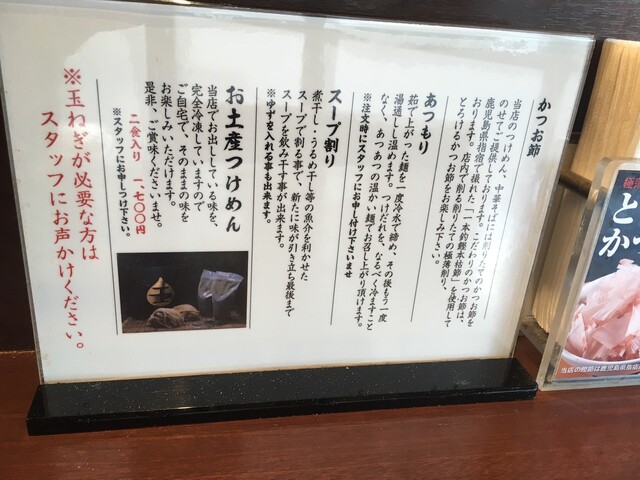 かつお節
当店のつけめん、中華そばには削りたてのかつお節を
のせてご提供しております。こだわりのかつお節は、
鹿児島県指宿で獲れた「一本釣鰹本枯節」を使用して
おります。店内で削る削りたての極薄削り、
とろけるかつお節をお楽しみ下さい。
あつもり
茹で上がった麺を一度冷水で締め、その後もう一度
湯通しし温めます。つけだれを、なるべく冷ますこと
なく、あつあつの温かい麺でお召し上がり頂けます。
※注文時にスタッフにお申し付け下さいませ
スープ割り
煮干し・うるめ干し等の魚介を利かせた
スープで割る事で、新たに味が引き立ち最後まで
スープを飲み干す事が出来ます。
※ゆずを入れる事も出来ます。
お土産つけめん
当店でお出ししている味を、
完全冷凍していますので
ご自宅で、そのままの味を
お楽しみいただけます。
是非、ご賞味くださいませ。
二食入り 一、七〇〇円
※スタッフにお申しつけ下さい。
※玉ねぎが必要な方は
スタッフにお声かけください。
極
と
か
当店の鰹節は鹿児島県指宿